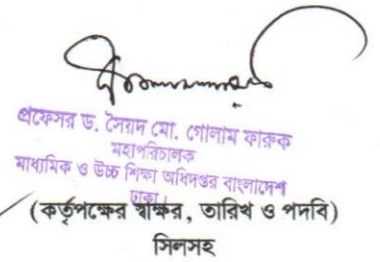 প্রফেসর ড. সৈয়দ মো. গোলাম ফারুক
মহাপরিচালক
মাধ্যমিক ও উচ্চ শিক্ষা অধিদপ্তর বাংলাদেশ
ঢাকা।
(কর্তৃপক্ষের স্বাক্ষর, তারিখ ও পদবি)
সিলসহ